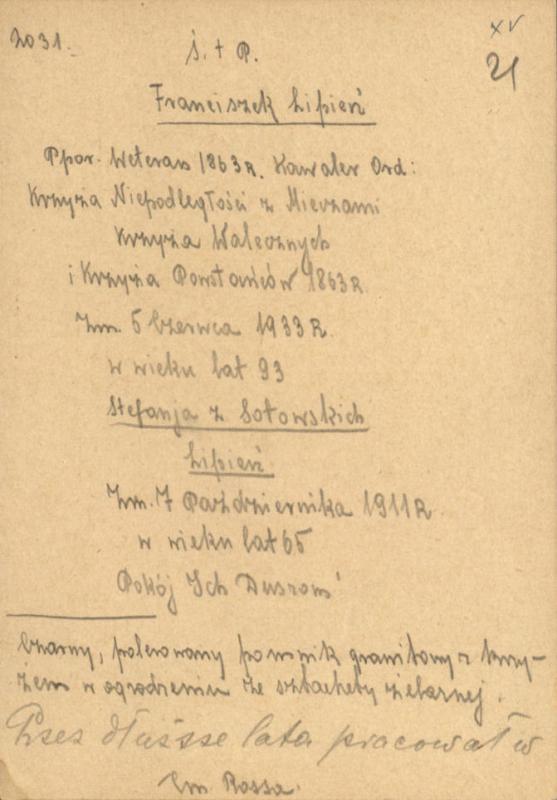 2031.
XV
21
Ś. + P.
Franciszek Lipień
Ppor. Weteran 1863 R. Kawaler Ord:
Krzyża Niepodległości z Mieczami
Krzyża Walecznych
i Krzyża Powstańców 1863 R.
Zm. 5 Czerwca 1933 R.
w wieku lat 93
Stefanja z Sotowskich
Lipień
Zm. 7 Października 1911 R
w wieku lat 65
Pokój Ich Duszom'
Czarny, polerowany pomnik granitowy z krzy-
żem w ogrodzeniu ze sztachety żelaznej.
Przez dłuższe lata pracował w
Cm. Rossa.